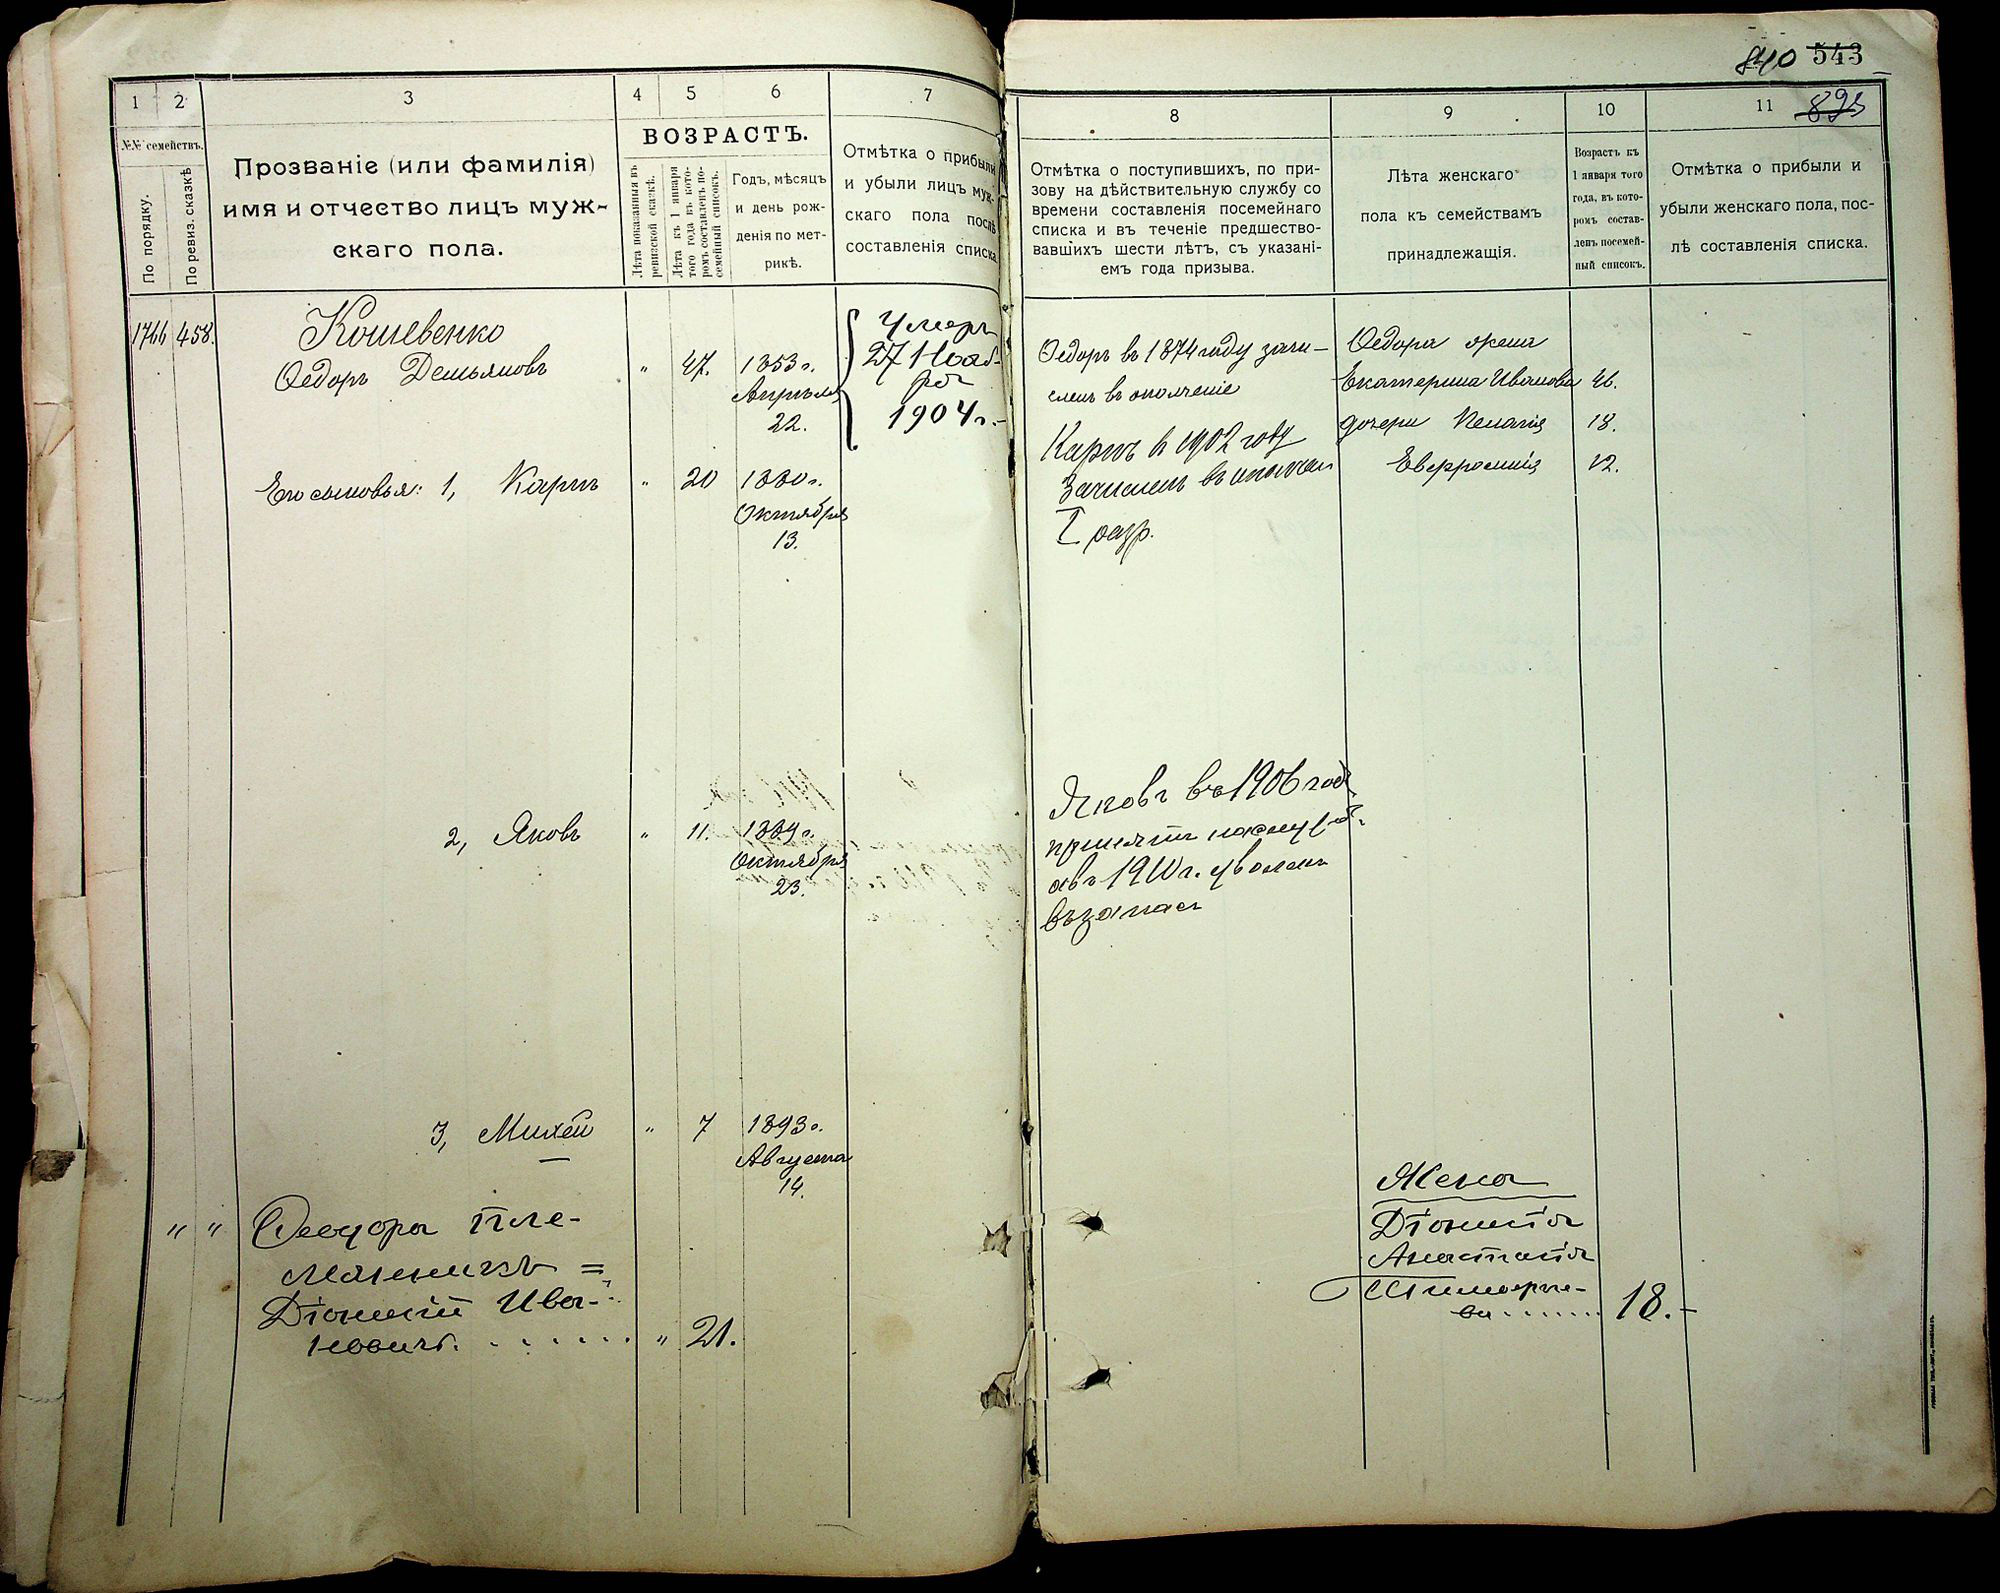 840 543
893
1
2
3
4
5
6
7
№№ семействъ.
По порядку.
По ревиз. сказкѣ
Прозваніе (или фамилія)
имя и отчество лицъ муж-
скаго пола.
ВОЗРАСТЪ.
Лѣта показанныя въ
ревизской сказкѣ.
Лѣта къ 1 января
того года въ кото-
ромъ составленъ по-
семейный списокъ.
Годъ, мѣсяцъ
и день рож-
денія по мет-
рикѣ.
Отмѣтка о прибыли
и убыли лицъ муж-
скаго пола послѣ
составленія списка
1766 458.
Кошевенко
Ѳедоръ Демьяновъ
" 47. 1853 г.
Апрѣля
22.
Умеръ
27 Нояб-
ря
1904 г.-
Его сыновья: 1, Карпъ
" 20 1880 г.
Октября
13.
2, Яковъ
" 11. 1889 г.
Октября
23.
3, Михей
" 7 1893 г.
Августа
14.
" " Ѳеодора пле-
мянникъ =
Діонисій Ива-
новичъ. " 21.
8
9
10
11
Отмѣтка о поступившихъ, по при-
зову на дѣйствительную службу со
времени составленія посемейнаго
списка и въ теченіе предшество-
вавшихъ шести лѣтъ, съ указані-
емъ года призыва.
Лѣта женскаго
пола къ семействамъ
принадлежащія.
Возрастъ къ
1 января того
года, въ кото-
ромъ состав-
ленъ посемей-
ный списокъ.
Отмѣтка о прибыли и
убыли женскаго пола, пос-
лѣ составленія списка.
Ѳедоръ въ 1874 году зачи-
сленъ въ ополченіе
Карпъ в 1902 году
Зачисленъ въ ополчен
I разр.
Яковъ въ 1906 году
принятъ на службу
а въ 1910 г. уволенъ
въ запасъ
Ѳедора жена
Екатерина Иванова 46.
дочери Пелагія 18.
Евфросинія 12.
Жена
Діонисія
Анастасія
Тимофѣе-
ва 18.-